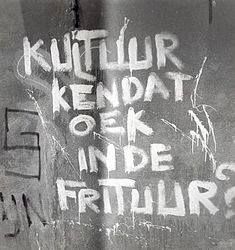 KULTUUR
KENDAT
OEK
IN DE
FRITUUR?